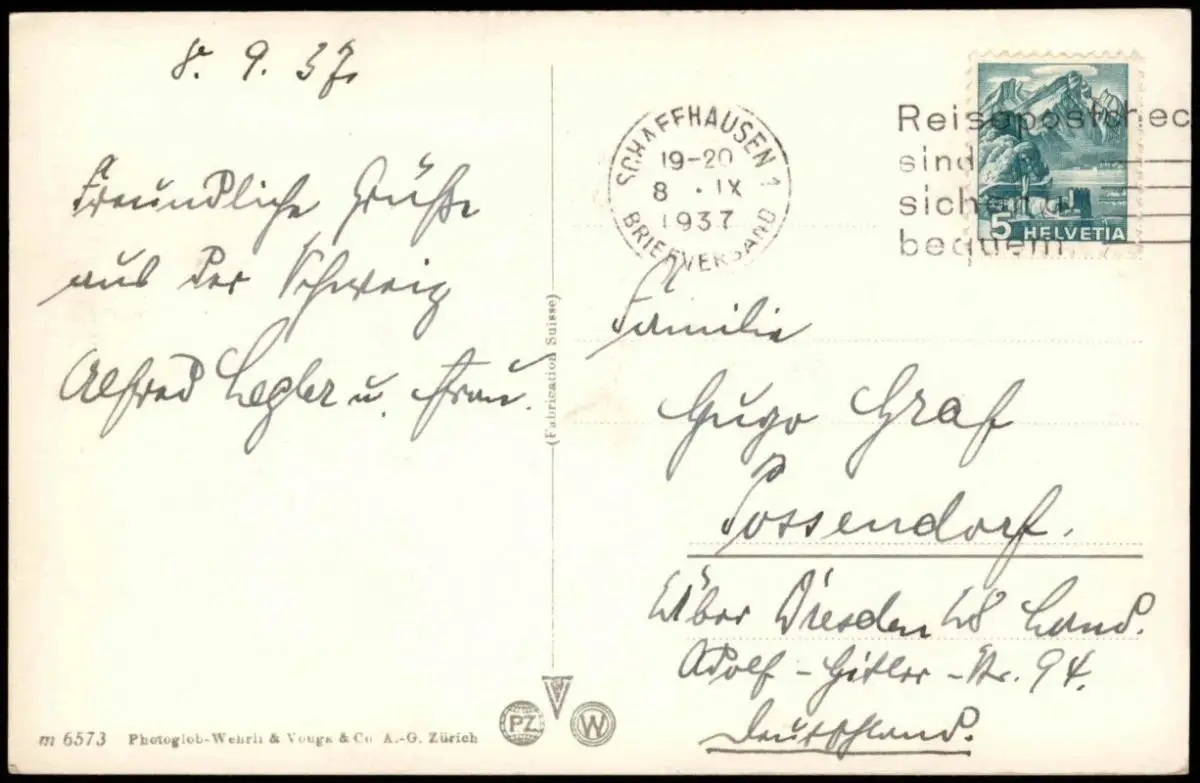 8. 9. 37.
Freundliche Grüße
aus der Schweiz
Alfred Legler u. Frau.
SCHAFFHAUSEN 1
19-20
8 . IX
1937
BRIEFVERSAND
Reisepostchec
sind
sicher u
bequem
5 HELVETIA
(Fabrication Suisse)
Familie
Hugo Graf
Possendorf.
Über Dresden 28 Land.
Adolf-Hitler-Str. 94.
Deutschland.
m 6573 Photoglob-Wehrli & Vouga & Co A.-G. Zürich
PZ V W